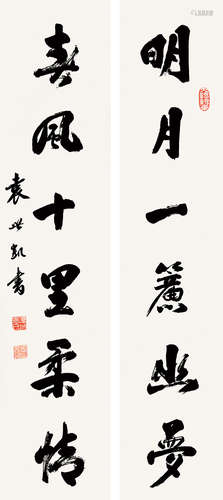 明月一簾幽夢
春風十里柔情
袁世凱書